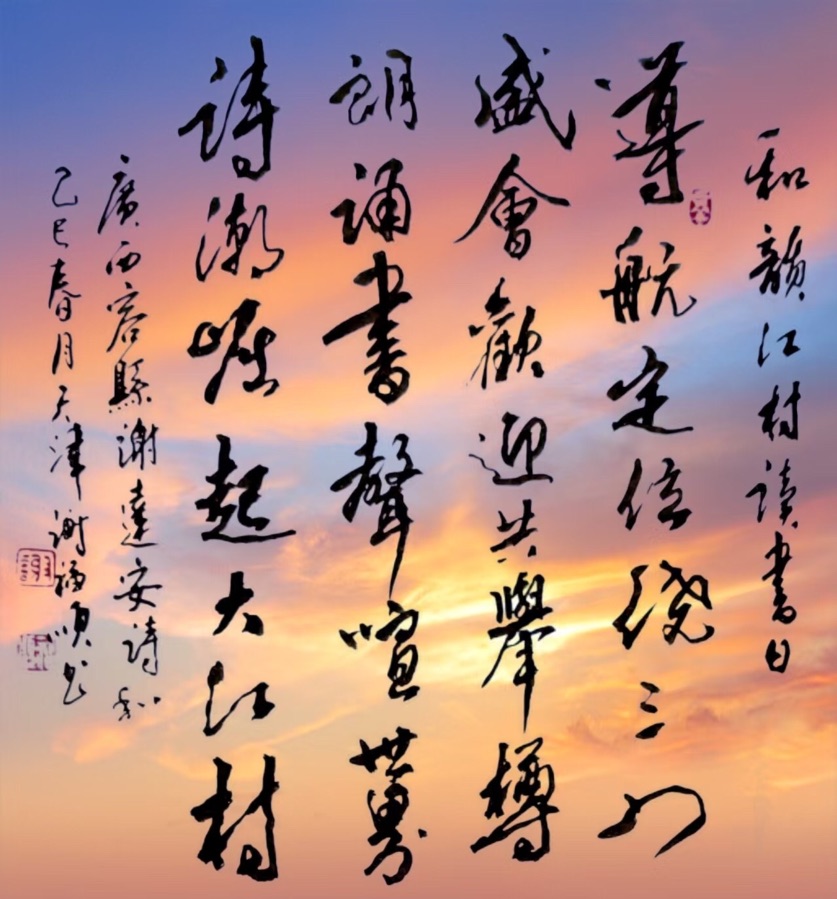 和韻江村读書日
導航定位绕三
盛會歡迎共舉樽
朗誦書聲喧世界
詩潮崛起大江村
廣西容縣謝達安詩和
乙巳春月天津謝福順书